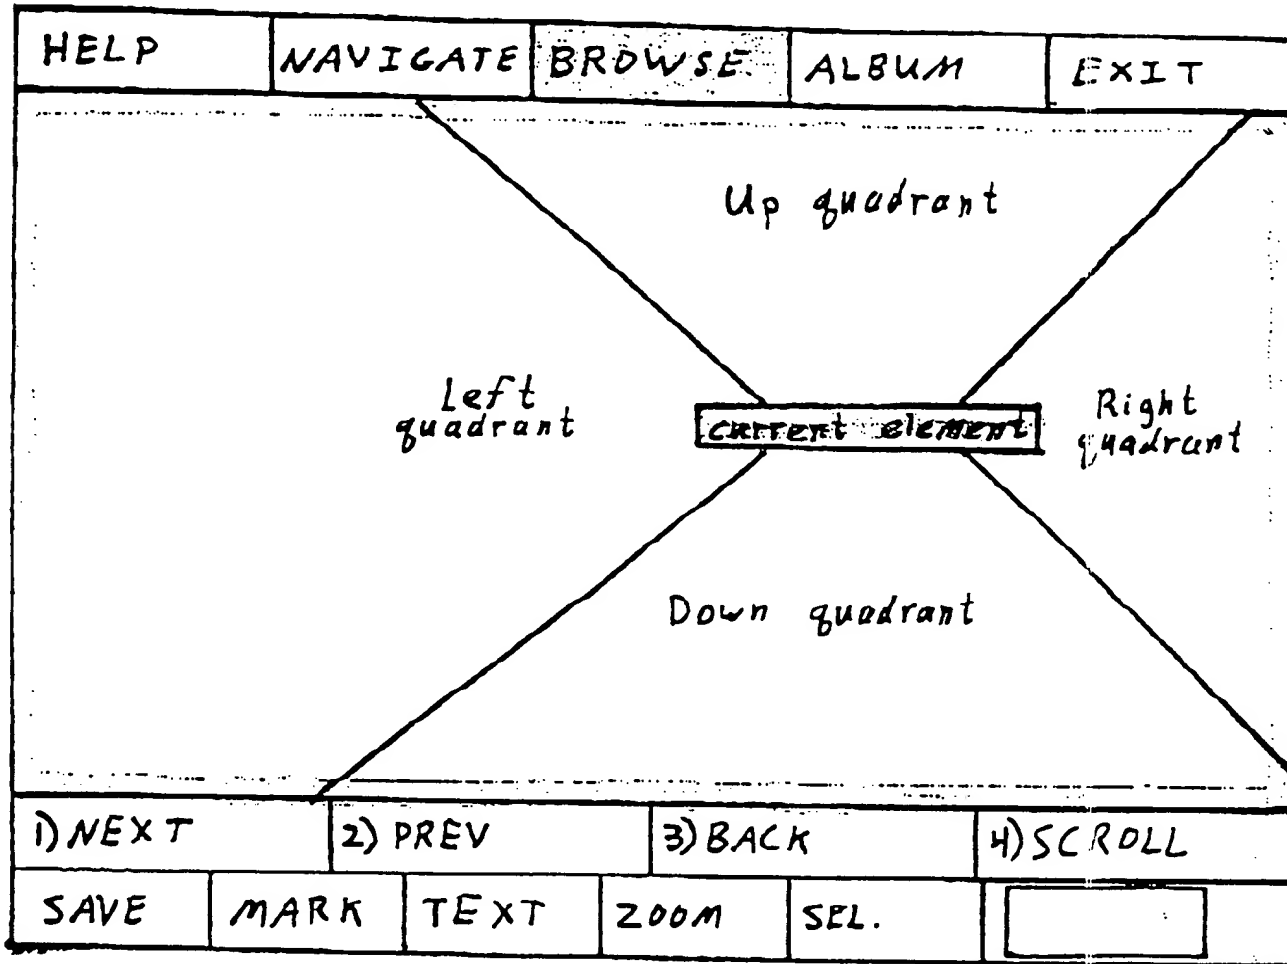 HELP
NAVIGATE
BROWSE
ALBUM
EXIT
Up quadrant
Left
quadrant
current element
Right
quadrant
Down quadrant
1) NEXT
2) PREV
3) BACK
4) SCROLL
SAVE
MARK
TEXT
ZOOM
SEL.